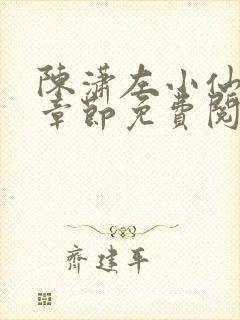 陳瀟左小仙
章節免費閱
齊建平